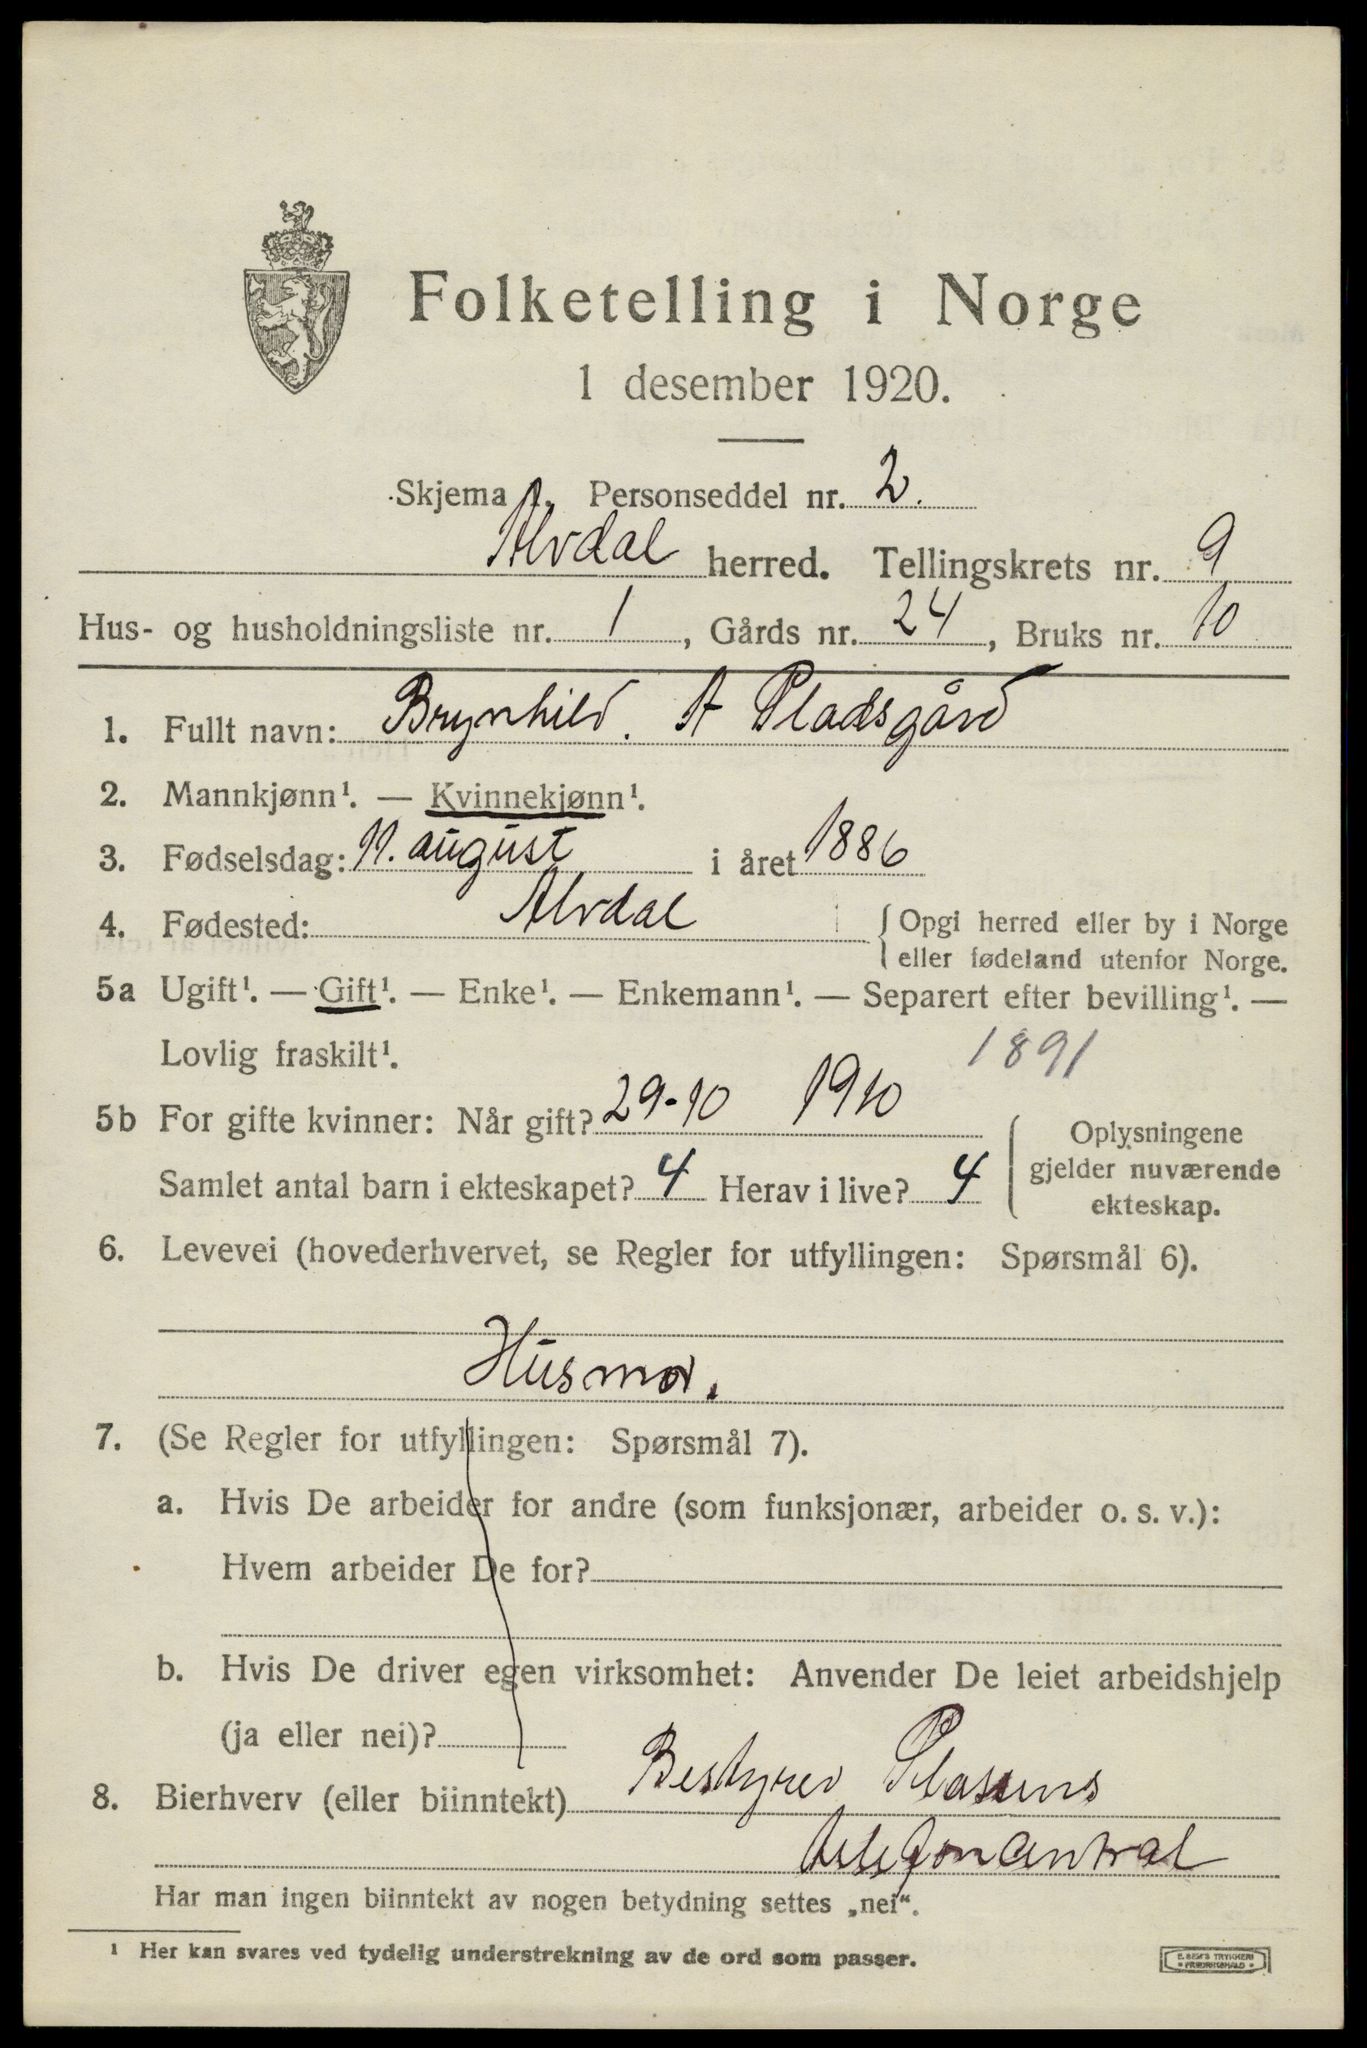 Folketelling i Norge
1 desember 1920.
Skjema 1. Personseddel nr. 2.
Alvdal herred. Tellingskrets nr. 9
Hus- og husholdningsliste nr. 1, Gårds nr. 24, Bruks nr. 10
1. Fullt navn: Brynhild. A Pladsgård
2. Mannkjønn¹. — Kvinnekjønn¹.
3. Fødselsdag: 11. august i året 1886
4. Fødested: Alvdal { Opgi herred eller by i Norge
eller fødeland utenfor Norge.
5a Ugift¹. — Gift¹. — Enke¹. — Enkemann¹. — Separert efter bevilling¹. —
Lovlig fraskilt¹. 1891
5b For gifte kvinner: Når gift? 29-10 1910
Samlet antal barn i ekteskapet? 4 Herav i live? 4
Oplysningene
gjelder nuværende
ekteskap.
6. Levevei (hovederhvervet, se Regler for utfyllingen: Spørsmål 6).
Husmor.
7. (Se Regler for utfyllingen: Spørsmål 7).
a. Hvis De arbeider for andre (som funksjonær, arbeider o. s. v.):
Hvem arbeider De for?
b. Hvis De driver egen virksomhet: Anvender De leiet arbeidshjelp
(ja eller nei)?
8. Bierhverv (eller biinntekt) Bestyrer Plassens
telefoncentral
Har man ingen biinntekt av nogen betydning settes „nei“.
¹ Her kan svares ved tydelig understrekning av de ord som passer.
E. SEM'S TRYKKERI
FREDRIKSHALD